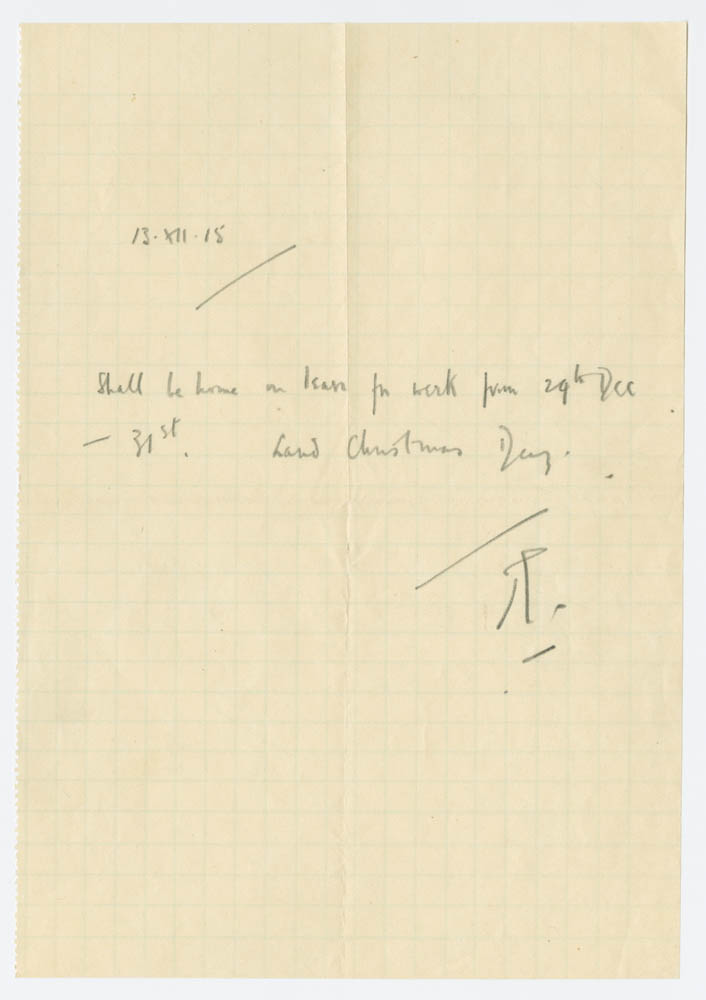 13.XII.15
Shall be home on leave for week from 24th Dec
— 31st. Land Christmas Day.
R.